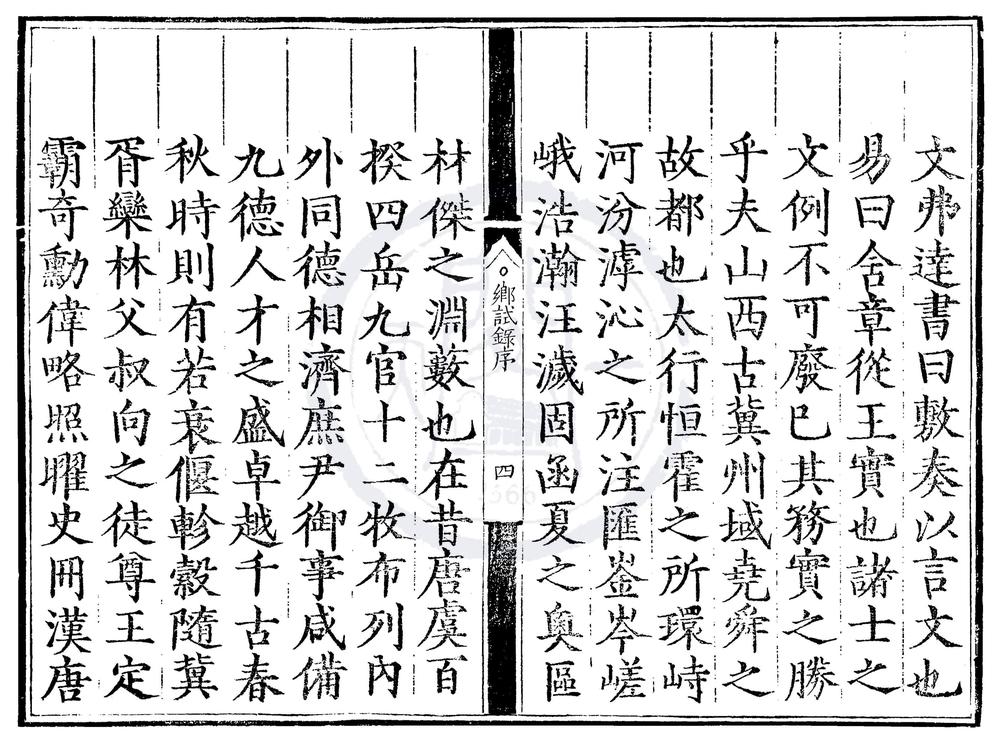 文弗達書曰敷奏以言文也
易曰含章從王實也諸士之
文例不可廢巳其務實之勝
乎夫山西古冀州域堯舜之
故都也太行恒霍之所環峙
河汾滹沁之所注匯崟岑嵯
峨浩瀚汪濊固函夏之奥區
鄉試錄序
四
材傑之淵藪也在昔唐虞百
揆四岳九官十二牧布列內
外同德相濟庶尹御事咸備
九德人才之盛卓越千古春
秋時則有若衰偃軫縠隨冀
胥欒林父叔向之徒尊王定
霸奇勳偉略照曜史冊漢唐